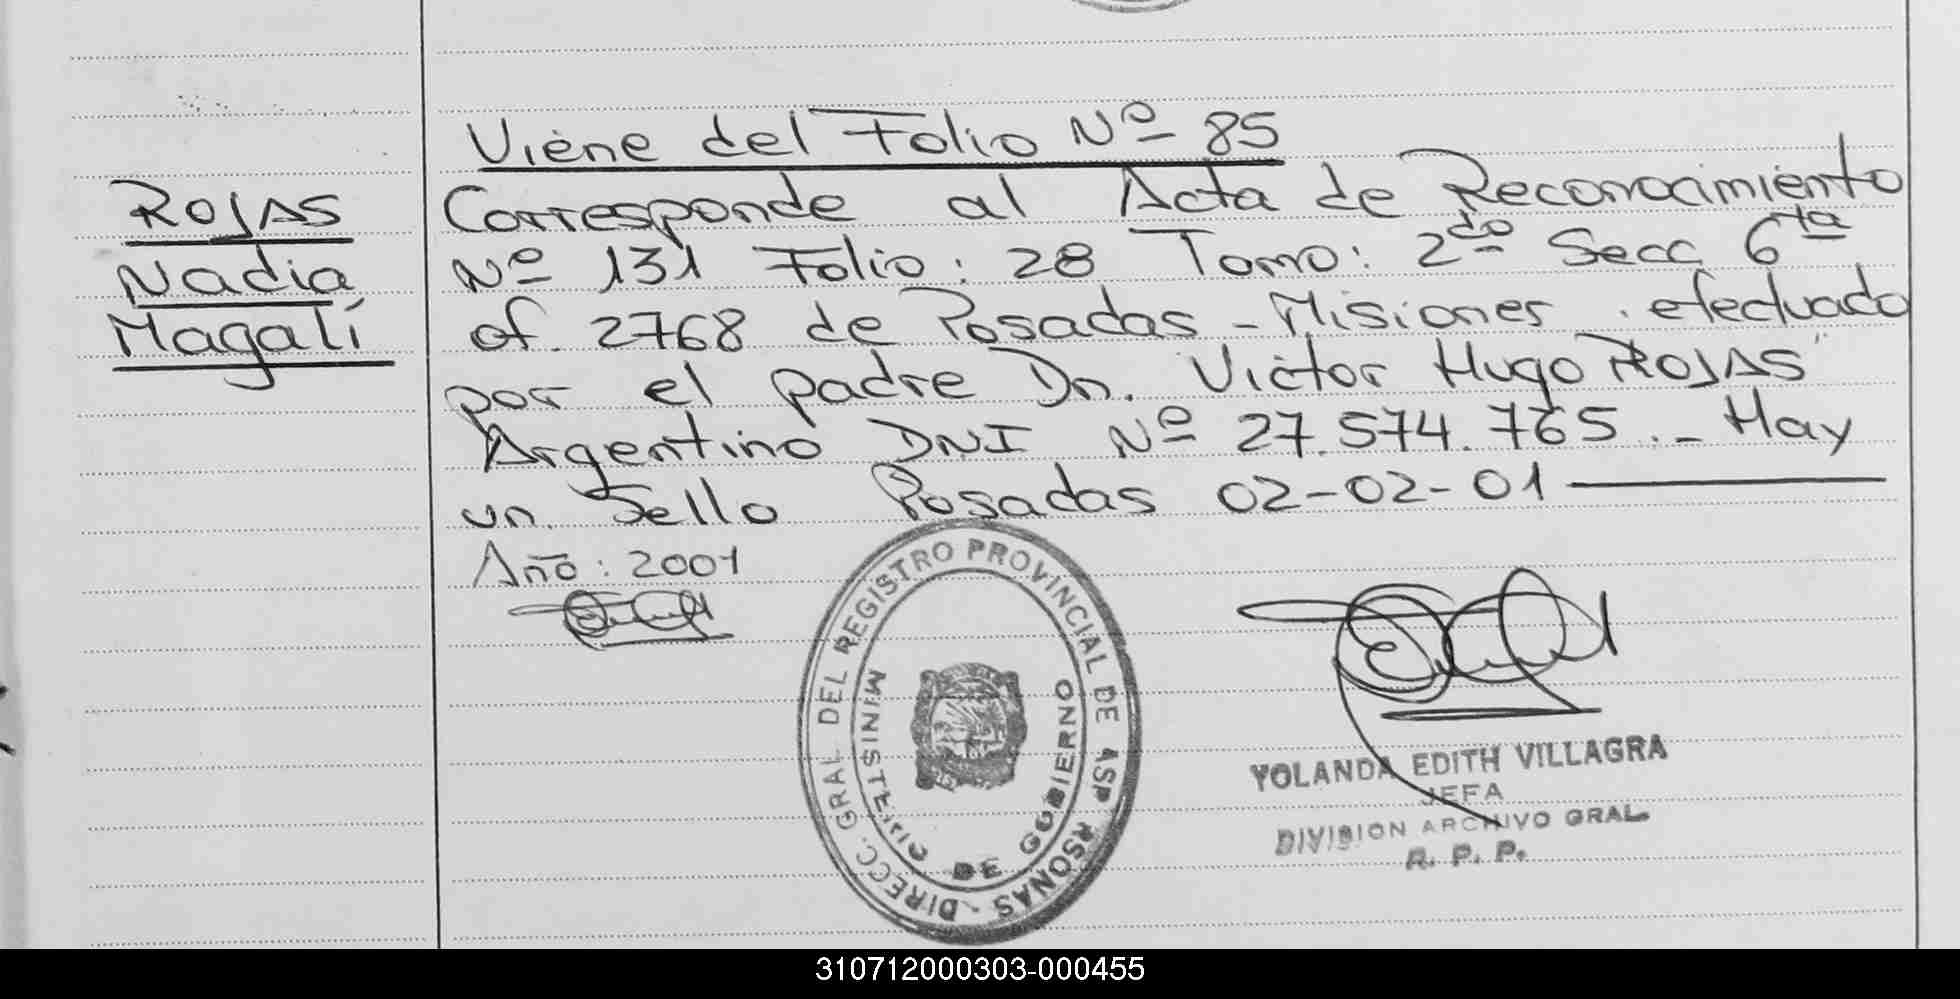 Viene del Folio Nº 85
ROJAS
Nadia
Magalí
Corresponde al Acta de Reconocimiento
Nº 131 Folio: 28 Tomo: 2do Secc 6ta
of. 2768 de Posadas - Misiones . efectuado
por el padre Dn. Victor Hugo ROJAS
Argentino DNI Nº 27.574.765 .- Hay
un Sello Posadas 02-02-01
Año: 2001
DIRECC. GRAL DEL REGISTRO PROVINCIAL DE
MINISTERIO DE GOBIERNO
YOLANDA EDITH VILLAGRA
JEFA
DIVISION ARCHIVO GRAL.
R. P. P.
310712000303-000455